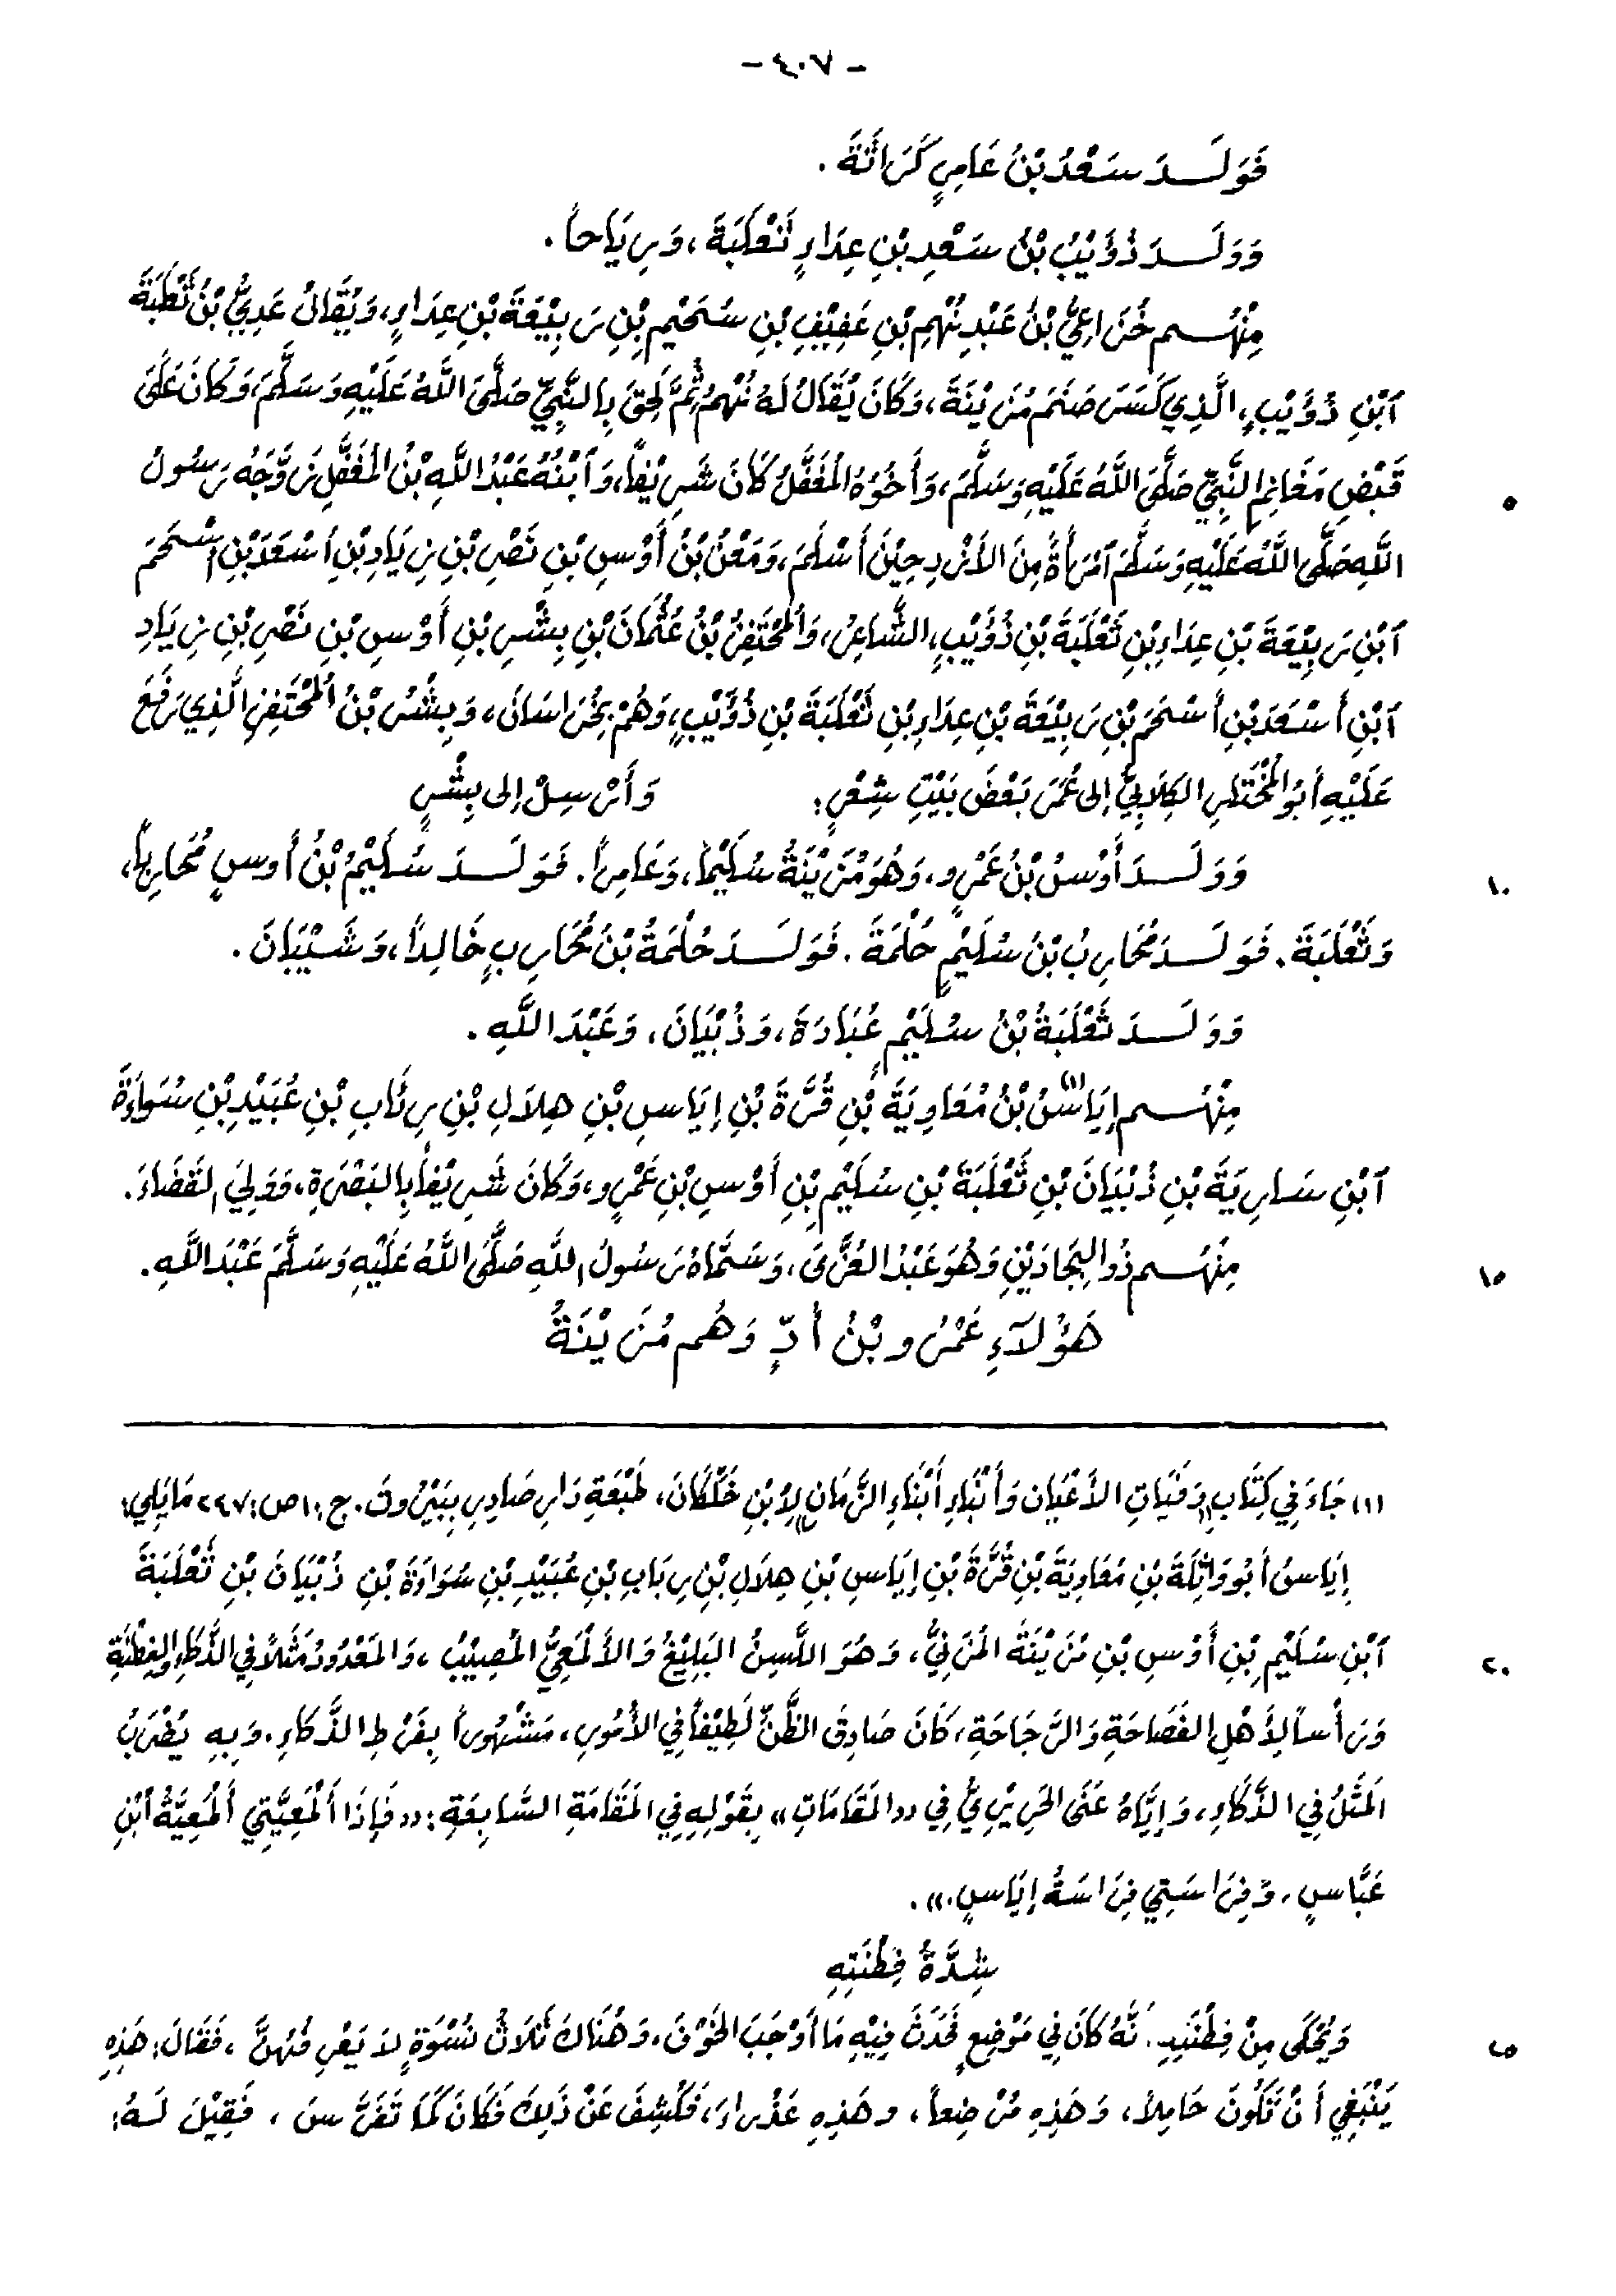 - ٤٠٧ -
فَوَلَدَ سَعْدُ بْنُ عَامِرٍ كَرَاثَةَ .
وَوَلَدَ ذُؤَيْبُ بْنُ سَعْدِ بْنِ عِدَاءٍ ثَعْلَبَةَ، وَرِيَاحاً .
مِنْهُم خُزَاعِيُّ بْنُ عَبْدِ نُهْمِ بْنِ عَفِيْفِ بْنِ سُحَيْمِ بْنِ رَبِيْعَةَ بْنِ عِدَاءٍ، وَيُقَالُ عَدِيُّ بْنُ ثَعْلَبَةَ
ٱبْنِ ذُؤَيْبٍ، الَّذِي كَسَرَ صَنَمَ مُزَيْنَةَ، وَكَانَ يُقَالُ لَهُ نُهْمُ ثُمَّ لَحِقَ بِالنَّبِيِّ صَلَّى اللَّهُ عَلَيْهِ وَسَلَّمَ، وَكَانَ عَلَى
قَبْضِ مَغَانِمِ النَّبِيِّ صَلَّى اللَّهُ عَلَيْهِ وَسَلَّمَ، وَأَخُوهُ الْمُغَفَّلُ كَانَ شَرِيْفاً، وَٱبْنُهُ عَبْدُ اللَّهِ بْنُ الْمُغَفَّلِ زَوَّجَهُ رَسُولُ
٥
اللَّهِ صَلَّى اللَّهُ عَلَيْهِ وَسَلَّمَ ٱمْرَأَةً مِنَ الأَزْدِ حِيْنَ أَسْلَمَ، وَمَعْنُ بْنُ أَوْسِ بْنِ نَصْرِ بْنِ زِيَادِ بْنِ أَسْعَدَ بْنِ أَسْحَمَ
ٱبْنِ رَبِيْعَةَ بْنِ عِدَاءِ بْنِ ثَعْلَبَةَ بْنِ ذُؤَيْبٍ، الشَّاعِرُ، وَالْمُحْتَفِزُ بْنُ عُثْمَانَ بْنِ بِشْرِ بْنِ أَوْسِ بْنِ نَصْرِ بْنِ زِيَادِ
ٱبْنِ أَسْعَدَ بْنِ أَسْحَمَ بْنِ رَبِيْعَةَ بْنِ عِدَاءِ بْنِ ثَعْلَبَةَ بْنِ ذُؤَيْبٍ، وَهُمْ بِخُرَاسَانَ، وَبِشْرُ بْنُ الْمُحْتَفِزِ الَّذِي رَفَعَ
عَلَيْهِ أَبُو الْمُخْتَارِ الكِلَابِيُّ إلى عُمَرَ بَعْضَ بَيْتِ شِعْرٍ: وَأَرْسِلْ إلى بِشْرٍ
وَوَلَدَ أَوْسُ بْنُ عَمْرٍو، وَهُوَ مُزَيْنَةُ سُلَيْماً، وَعَامِراً. فَوَلَدَ سُلَيْمُ بْنُ أَوسٍ مُحَارِباً،
١٠
وَثَعْلَبَةَ. فَوَلَدَ مُحَارِبُ بْنُ سُلَيْمٍ حُلْمَةَ. فَوَلَدَ حُلْمَةُ بْنُ مُحَارِبٍ خَالِداً، وَشَيْبَانَ .
وَوَلَدَ ثَعْلَبَةُ بْنُ سُلَيْمٍ عُبَادَةَ، وَذُبْيَانَ، وَعَبْدَ اللَّهِ .
مِنْهُم إِيَاسُ (١) بْنُ مُعَاوِيَةَ بْنِ قُرَّةَ بْنِ إِيَاسِ بْنِ هِلَالِ بْنِ رِئَابِ بْنِ عُبَيْدِ بْنِ سُوَاءَةَ
ٱبْنِ سَارِيَةَ بْنِ ذُبْيَانَ بْنِ ثَعْلَبَةَ بْنِ سُلَيْمِ بْنِ أَوْسِ بْنِ عَمْرٍو، وَكَانَ شَرِيْفاً بِالبَصْرَةِ، وَوَلِيَ القَضَاءَ.
مِنْهُم ذُو البِجَادَيْنِ وَهُوَ عَبْدُ العُزَّى، وَسَمَّاهُ رَسُولُ اللهِ صَلَّى اللَّهُ عَلَيْهِ وَسَلَّمَ عَبْدَ اللَّهِ.
١٥
هَؤُلَآءِ عَمْرُو بْنُ أُدٍّ وَهُم مُزَيْنَةُ
(١) جَاءَ فِي كِتَابِ ((وَفَيَاتِ الأَعْيَانِ وَأَنْبَاءِ أَبْنَاءِ الزَّمَانِ)) لِابْنِ خَلِّكَانَ، طَبْعَةِ دَارِ صَادِرِ بِبَيْرُوتَ. ج: ١ ص: ٢٤٧ مَا يَلِي:
إِيَاسُ أَبُو وَاثِلَةَ بْنِ مُعَاوِيَةَ بْنِ قُرَّةَ بْنِ إِيَاسِ بْنِ هِلَالِ بْنِ رِبَابِ بْنِ عُبَيْدِ بْنِ سُوَاءَةَ بْنِ ذُبْيَانَ بْنِ ثَعْلَبَةَ
ٱبْنِ سُلَيْمِ بْنِ أَوْسِ بْنِ مُزَيْنَةَ المُزَنِيُّ، وَهُوَ اللَّسِنُ البَلِيْغُ وَالأَلْمَعِيُّ الْمُصِيْبُ، وَالمَعْدُودُ مَثَلاً فِي الذَّكَاءِ وَالفِطْنَةِ
٢٠
وَرَأْساً لِأَهْلِ الفَصَاحَةِ وَالرَّجَاحَةِ، كَانَ صَادِقَ الظَّنِّ لَطِيْفاً فِي الأُمُورِ، مَشْهُوراً بِفَرْطِ الذَّكَاءِ. وَبِهِ يُضْرَبُ
المَثَلُ فِي الذَّكَاءِ، وَإِيَّاهُ عَنَى الحَرِيْرِيُّ فِي ((المَقَامَاتِ)) بِقَوْلِهِ فِي المَقَامَةِ السَّابِعَةِ: ((فَإِذَا أَلْمَعِيَّتِي أَلْمَعِيَّةُ ٱبْنِ
عَبَّاسٍ، وَفِرَاسَتِي فِرَاسَةُ إِيَاسٍ.)).
شِدَّةُ فِطْنَتِهِ
وَيُحْكَى مِنْ فِطْنَتِهِ أَنَّهُ كَانَ فِي مَوْضِعٍ فَحَدَثَ فِيْهِ مَا أَوْجَبَ الخَوْفَ، وَهُنَاكَ ثَلَاثُ نِسْوَةٍ لَا يَعْرِفُهُنَّ، فَقَالَ: هَذِهِ
٢٥
يَنْبَغِي أَنْ تَكُونَ حَامِلاً، وَهَذِهِ مُرْضِعاً، وهَذِهِ عَذْرَاءَ، فَكُشِفَ عَنْ ذَلِكَ فَكَانَ كَمَا تَفَرَّسَ، فَقِيْلَ لَهُ: